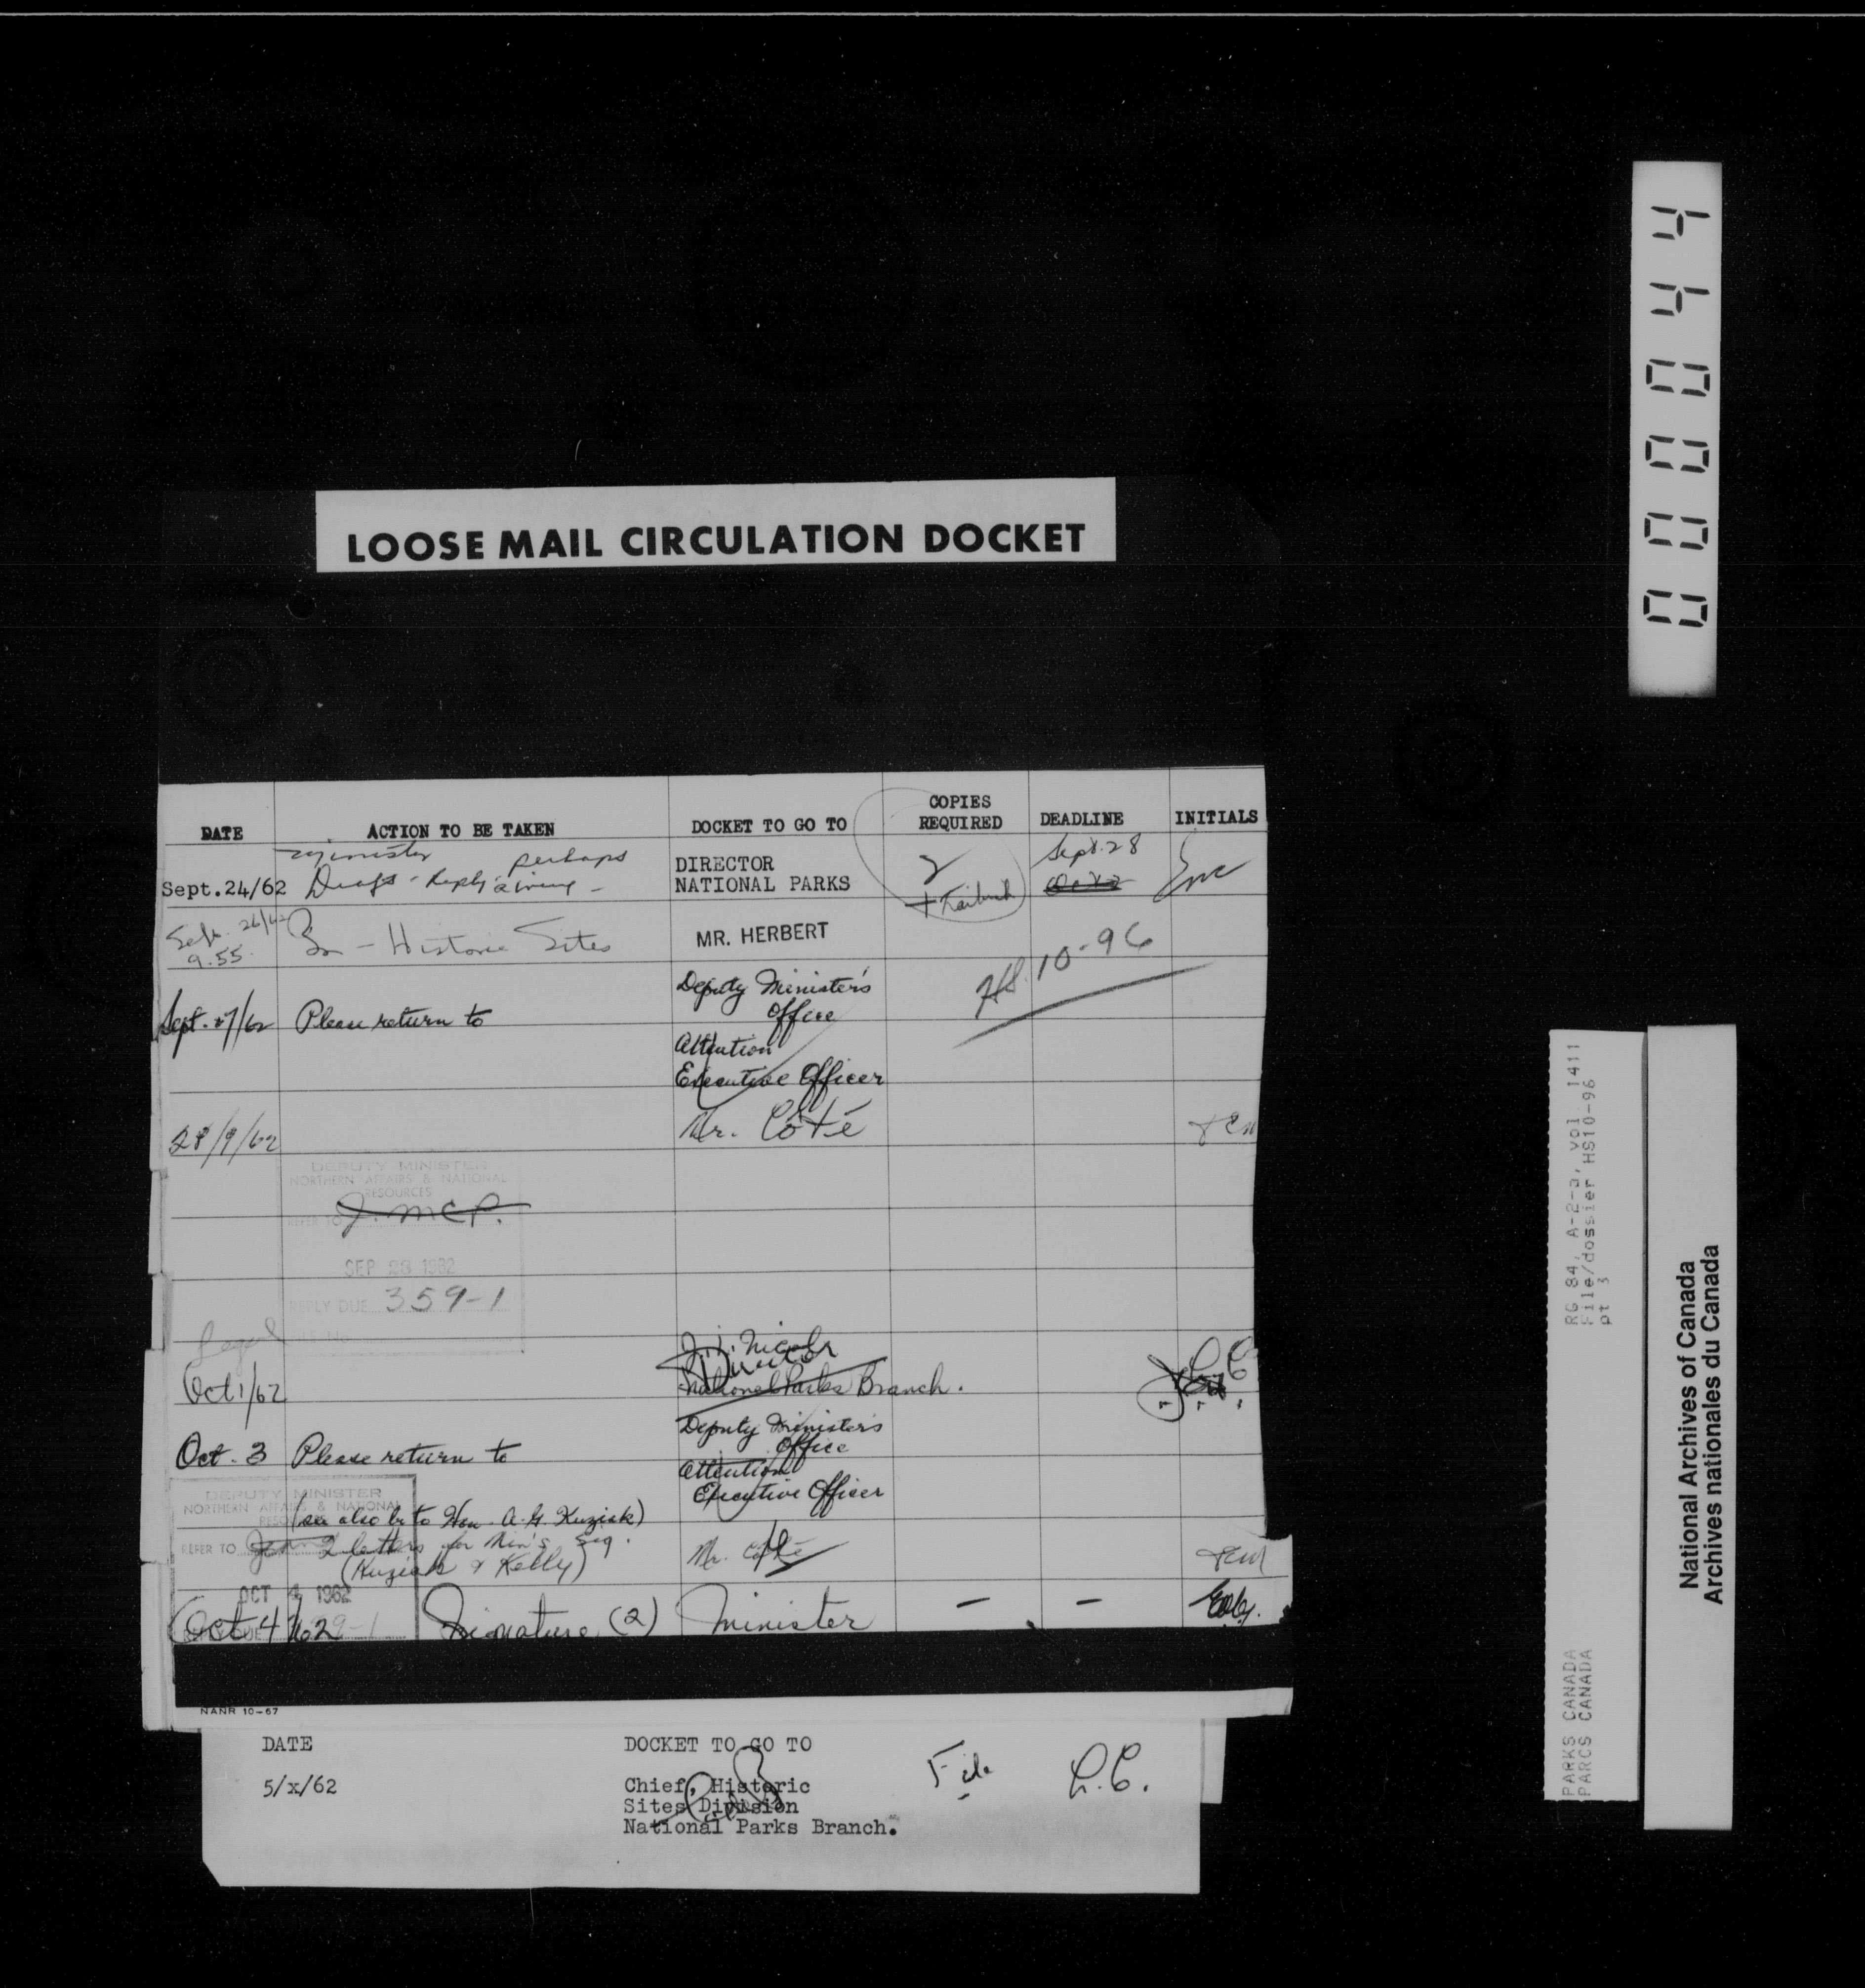 LOOSE MAIL CIRCULATION DOCKET
DATE ACTION TO BE TAKEN DOCKET TO GO TO COPIES REQUIRED DEADLINE INITIALS
perhaps
Sept. 28
Sept.24/62 DIRECTOR
NATIONAL PARKS 2
9.55. - Historic Sites MR. HERBERT
HS. 10-96
Sept. 27/62 Please return to Deputy Minister's
Office
Attention
Executive Officer
28/9/62 Mr. Côté
DEPUTY MINISTER
NORTHERN AFFAIRS & NATIONAL
RESOURCES
REFER TO
SEP 28 1962
REPLY DUE 359-1
Legal
Director
Oct 1/62 National Parks Branch.
Oct. 3 Please return to Deputy Minister's
Office
Attention
Executive Officer
DEPUTY MINISTER
NORTHERN AFFAIRS & NATIONAL
(see also to Hon. A.G. Kuziak)
REFER TO 2 letters for Min's sig. Mr. Côté
(Kuziak & Kelly)
OCT 4 1962
Oct 4/62 Signature (2) Minister - -
NANR 10-67
DATE DOCKET TO GO TO
5/x/62 Chief, Historic
Sites Division
National Parks Branch.
File L.C.
000044
RG 84, A-2-a, vol 1411
File/dossier HS10-96
pt 3
PARKS CANADA
PARCS CANADA
National Archives of Canada
Archives nationales du Canada